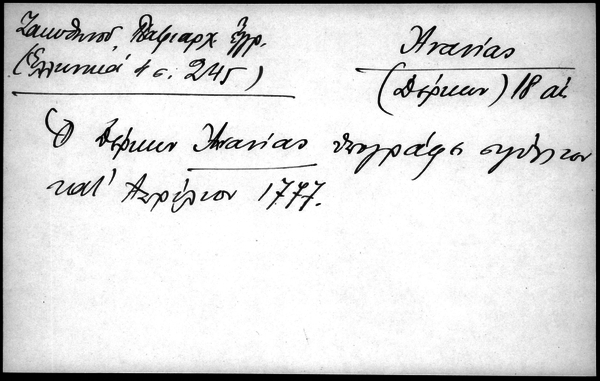 Ζακυθηνού, Πατριαρχ. ἔγγρ.
(Ἑλληνικά 4 σ. 245)
Ἀνανίας
(Δέρκων) 18 αἰ.
Ὁ Δέρκων Ἀνανίας ὑπογράφει σιγίλλιον
κατ' Ἀπρίλιον 1777.